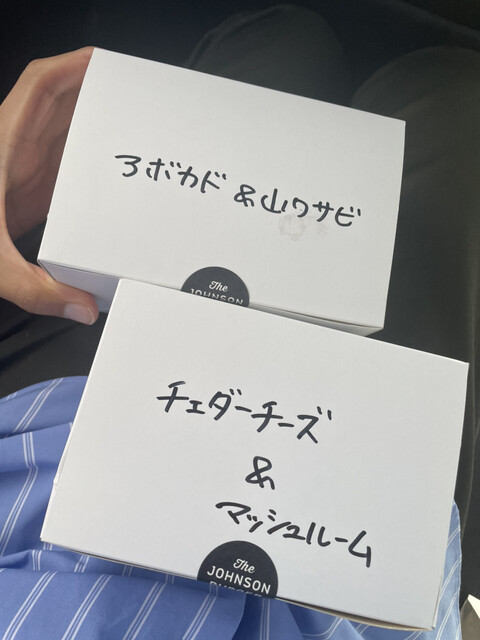 アボカド&山ワサビ
The
JOHNSON
チェダーチーズ
&
マッシュルーム
The
JOHNSON